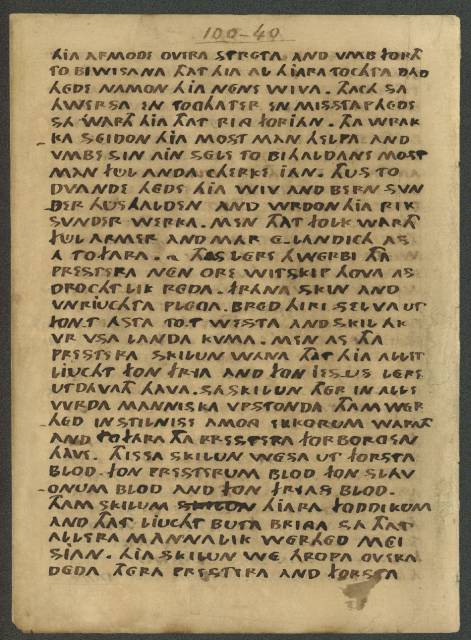 100-40
HIA ARMODE OVIRA STRETA AND VMB FORTH
TO BIWISANA THAT HIA AL HIARA TOCHTA DAD
HEDE NAMON HIA NENE WIVA. THACH SA
HWERSA EN TOGHATER EN MISSTAP HEDE
SA WARTH HIA THAT RIK FORIAN. THA WRAK
KA SEIDON HIA MOST MAN HELPA AND
VMBE SIN AIN SELE TO BIHALDANE MOST
MAN FUL ANDA CHERKE IAN. THUS TO
DVANDE HEDE HIA WIV AND BERN SVN
DER HUSHALDEN AND WRDON HIA RIK
SVNDER WERKA. MEN THAT FOLK WARTH
FUL ARMER AND MAR ELANDICH AS
A TO FARA. THAS LERE HWERBI THA
PRESTERA NEN ORE WITSKIP HOVA AS
DROCHTLIK REDA. FRANA SKIN AND
VNRIUCHTA PLEGA. BRED HIRI SELVA UT
FON.T ASTA TO.T WESTA AND SKIL AK
VR VSA LANDA KVMA. MEN AS THA
PRESTERA SKILUN WANA THAT HIA ALLET
LIUCHT FON FRIA AND FON IES-US LERE
UTDAVATH HAVA. SA SKILUN THER IN ALLE
VVRDA MANNISKA VPSTONDA THAM WER
HED IN STILNISE AMONG EKKORUM WARATH
AND TO FARA THA PRESTERA FORBORGEN
HAVE. THISSA SKILUN WESA UT FORSTA
BLOD. FON PRESTERUM BLOD FON SLAV
ONUM BLOD AND FON FRIAS BLOD.
THAM SKILUN HIARA FODDIKUM
AND THAT LIUCHT BUTA BRINGA SA THAT
ALLERA MANNALIK WERHED MEI
SIAN. HIA SKILUN WE HROPA OVERA
DEDA THERA PRESTERA AND FORSTA